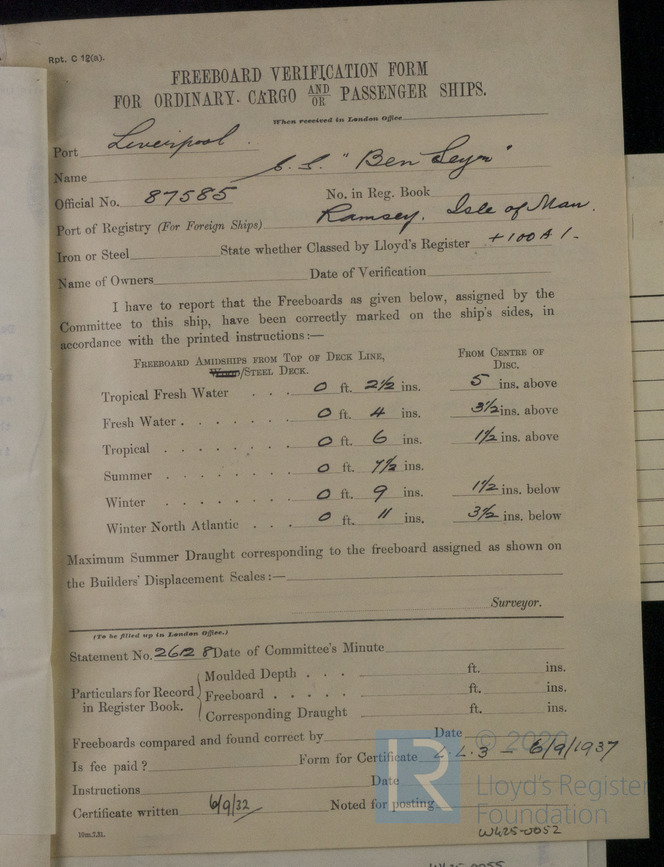 Rpt. C 12(a).
FREEBOARD VERIFICATION FORM
FOR ORDINARY CARGO AND/OR PASSENGER SHIPS.
When received in London Office
Port Liverpool.
Name S.S. "Ben Seyr"
Official No. 87585 No. in Reg. Book
Port of Registry (For Foreign Ships) Ramsey. Isle of Man.
Iron or Steel State whether Classed by Lloyd's Register +100A1.
Name of Owners Date of Verification
I have to report that the Freeboards as given below, assigned by the
Committee to this ship, have been correctly marked on the ship's sides, in
accordance with the printed instructions:—
FREEBOARD AMIDSHIPS FROM TOP OF DECK LINE, FROM CENTRE OF
WOOD/STEEL DECK. DISC.
Tropical Fresh Water . . . 0 ft. 2½ ins. 5 ins. above
Fresh Water . . . . . . 0 ft. 4 ins. 3½ ins. above
Tropical . . . . . . . 0 ft. 6 ins. 1½ ins. above
Summer . . . . . . . 0 ft. 7½ ins.
Winter . . . . . . . 0 ft. 9 ins. 1½ ins. below
Winter North Atlantic . . . 0 ft. 11 ins. 3½ ins. below
Maximum Summer Draught corresponding to the freeboard assigned as shown on
the Builders' Displacement Scales:—
Surveyor.
(To be filled up in London Office.)
Statement No. 26128 Date of Committee's Minute
Particulars for Record in Register Book.
Moulded Depth . . . ft. ins.
Freeboard . . . . . ft. ins.
Corresponding Draught ft. ins.
Freeboards compared and found correct by Date
Is fee paid? Form for Certificate L.L.3 – 6/9/1937
Instructions Date
Certificate written 6/9/32 Noted for posting
10m.7.31.
© 2020
Lloyd's Register
Foundation
W425-0052
W425-0055